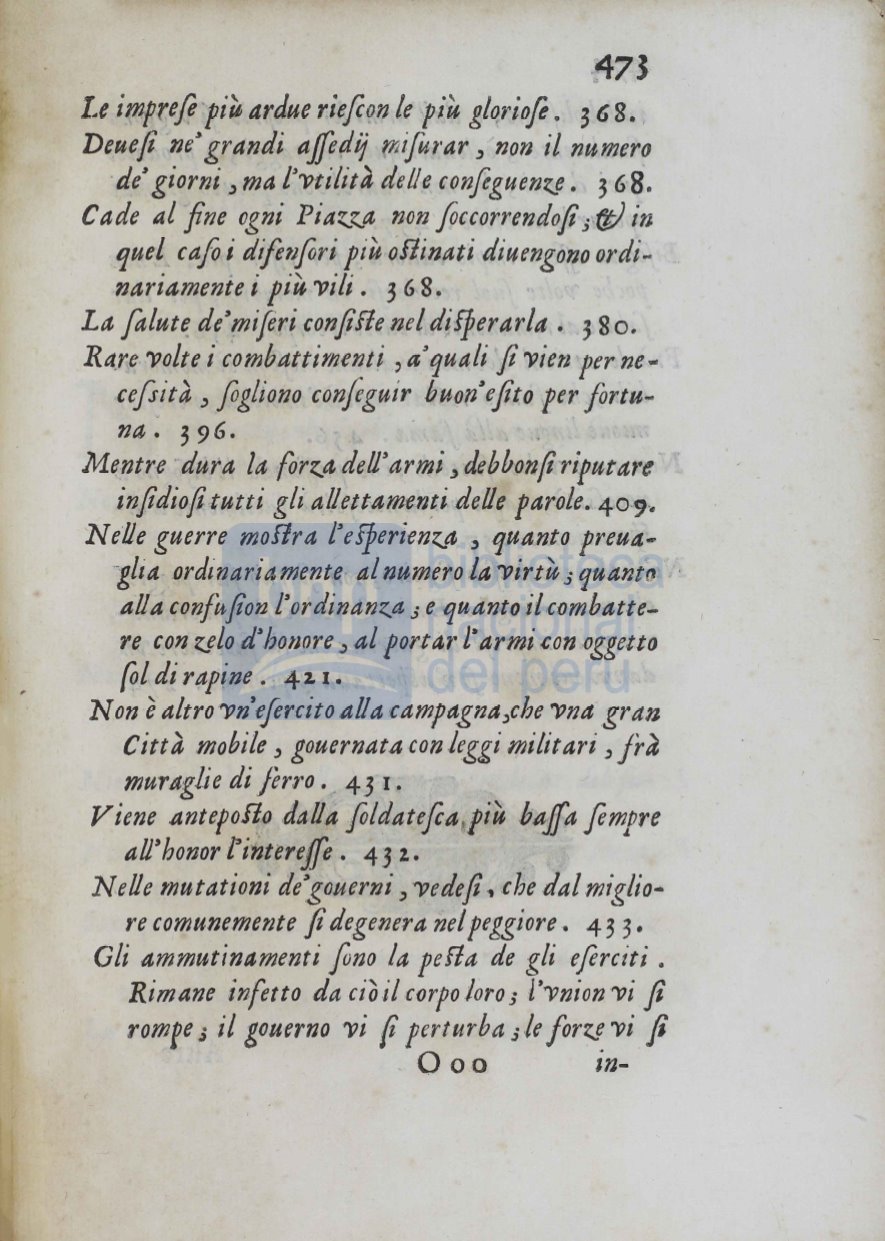 473
Le impreſe più ardue rieſcon le più glorioſe. 368.
Deueſi ne' grandi aſſedij miſurar, non il numero
de' giorni, ma l'vtilità delle conſeguenze. 368.
Cade al fine ogni Piazza non ſoccorrendoſi; & in
quel caſo i difenſori più oſtinati diuengono ordi-
nariamente i più vili. 368.
La ſalute de' miſeri conſiſte nel diſperarla. 380.
Rare volte i combattimenti, a' quali ſi vien per ne-
ceſsità, ſogliono conſeguir buon' eſito per fortu-
na. 396.
Mentre dura la forza dell'armi, debbonſi riputare
inſidioſi tutti gli allettamenti delle parole. 409.
Nelle guerre moſtra l'eſperienza, quanto preua-
glia ordinariamente al numero la virtù; quanto
alla confuſion l'ordinanza; e quanto il combatte-
re con zelo d'honore, al portar l'armi con oggetto
ſol di rapine. 421.
Non è altro vn'eſercito alla campagna, che vna gran
Città mobile, gouernata con leggi militari, frà
muraglie di ferro. 431.
Viene antepoſto dalla ſoldateſca più baſſa ſempre
all'honor l'intereſſe. 432.
Nelle mutationi de' gouerni, vedeſi, che dal miglio-
re comunemente ſi degenera nel peggiore. 433.
Gli ammutinamenti ſono la peſta de gli eſerciti.
Rimane infetto da ciò il corpo loro; l'vnion vi ſi
rompe; il gouerno vi ſi perturba; le forze vi ſi
Ooo in-
biblioteca
nacional
del perú